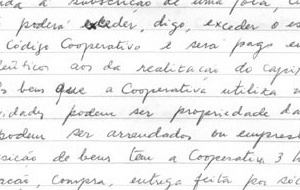 à subscrição de uma
poderá exceder, digo, exceder o
Código Cooperativo e será pago em
aos da realização do capi
bens que a Cooperativa utiliza
dades podem ser propriedade da
podem ser arrendados ou empres
sição de bens tem a Cooperativa 3
compra, entrega feita por